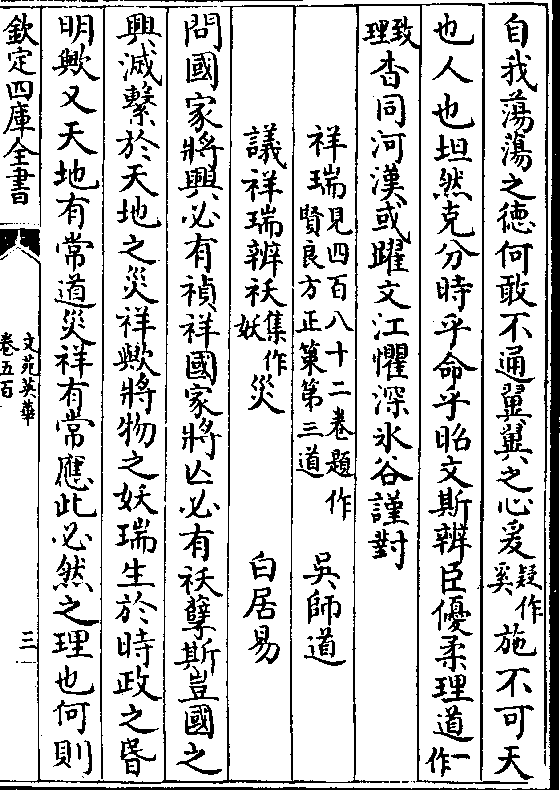 自我蕩蕩之德何敢不通翼翼之心爰疑作奚施不可天
也人也坦然克分時乎命乎昭文斯辨臣優柔理道一作
致理杳同河漢或躍文江懼深氷谷謹對
祥瑞見四百八十二卷題作賢良方正策第三道 吳師道
議祥瑞辨祅集作妖災 白居易
問國家將興必有禎祥國家將亡必有祅孽斯豈國之
興滅繫於天地之災祥歟將物之妖瑞生於時政之昏
明歟又天地有常道災祥有常應此必然之理也何則
欽定四庫全書
文苑英華
卷五百
三